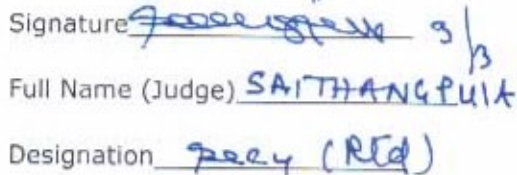 Signature 9/3
Full Name (Judge) SAITHANGPUIA
Designation (Rtd)